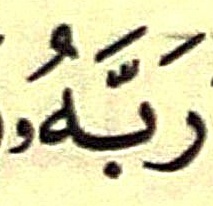 رَبَّهُۥ